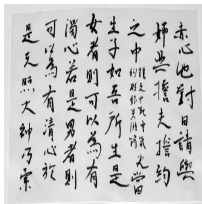 赤心也對曰請與
姉共誓夫誓約
之中
生子如吾所生是
女者則可以為有
濁心若是男者則
可以為有清心於
是天照大神乃索